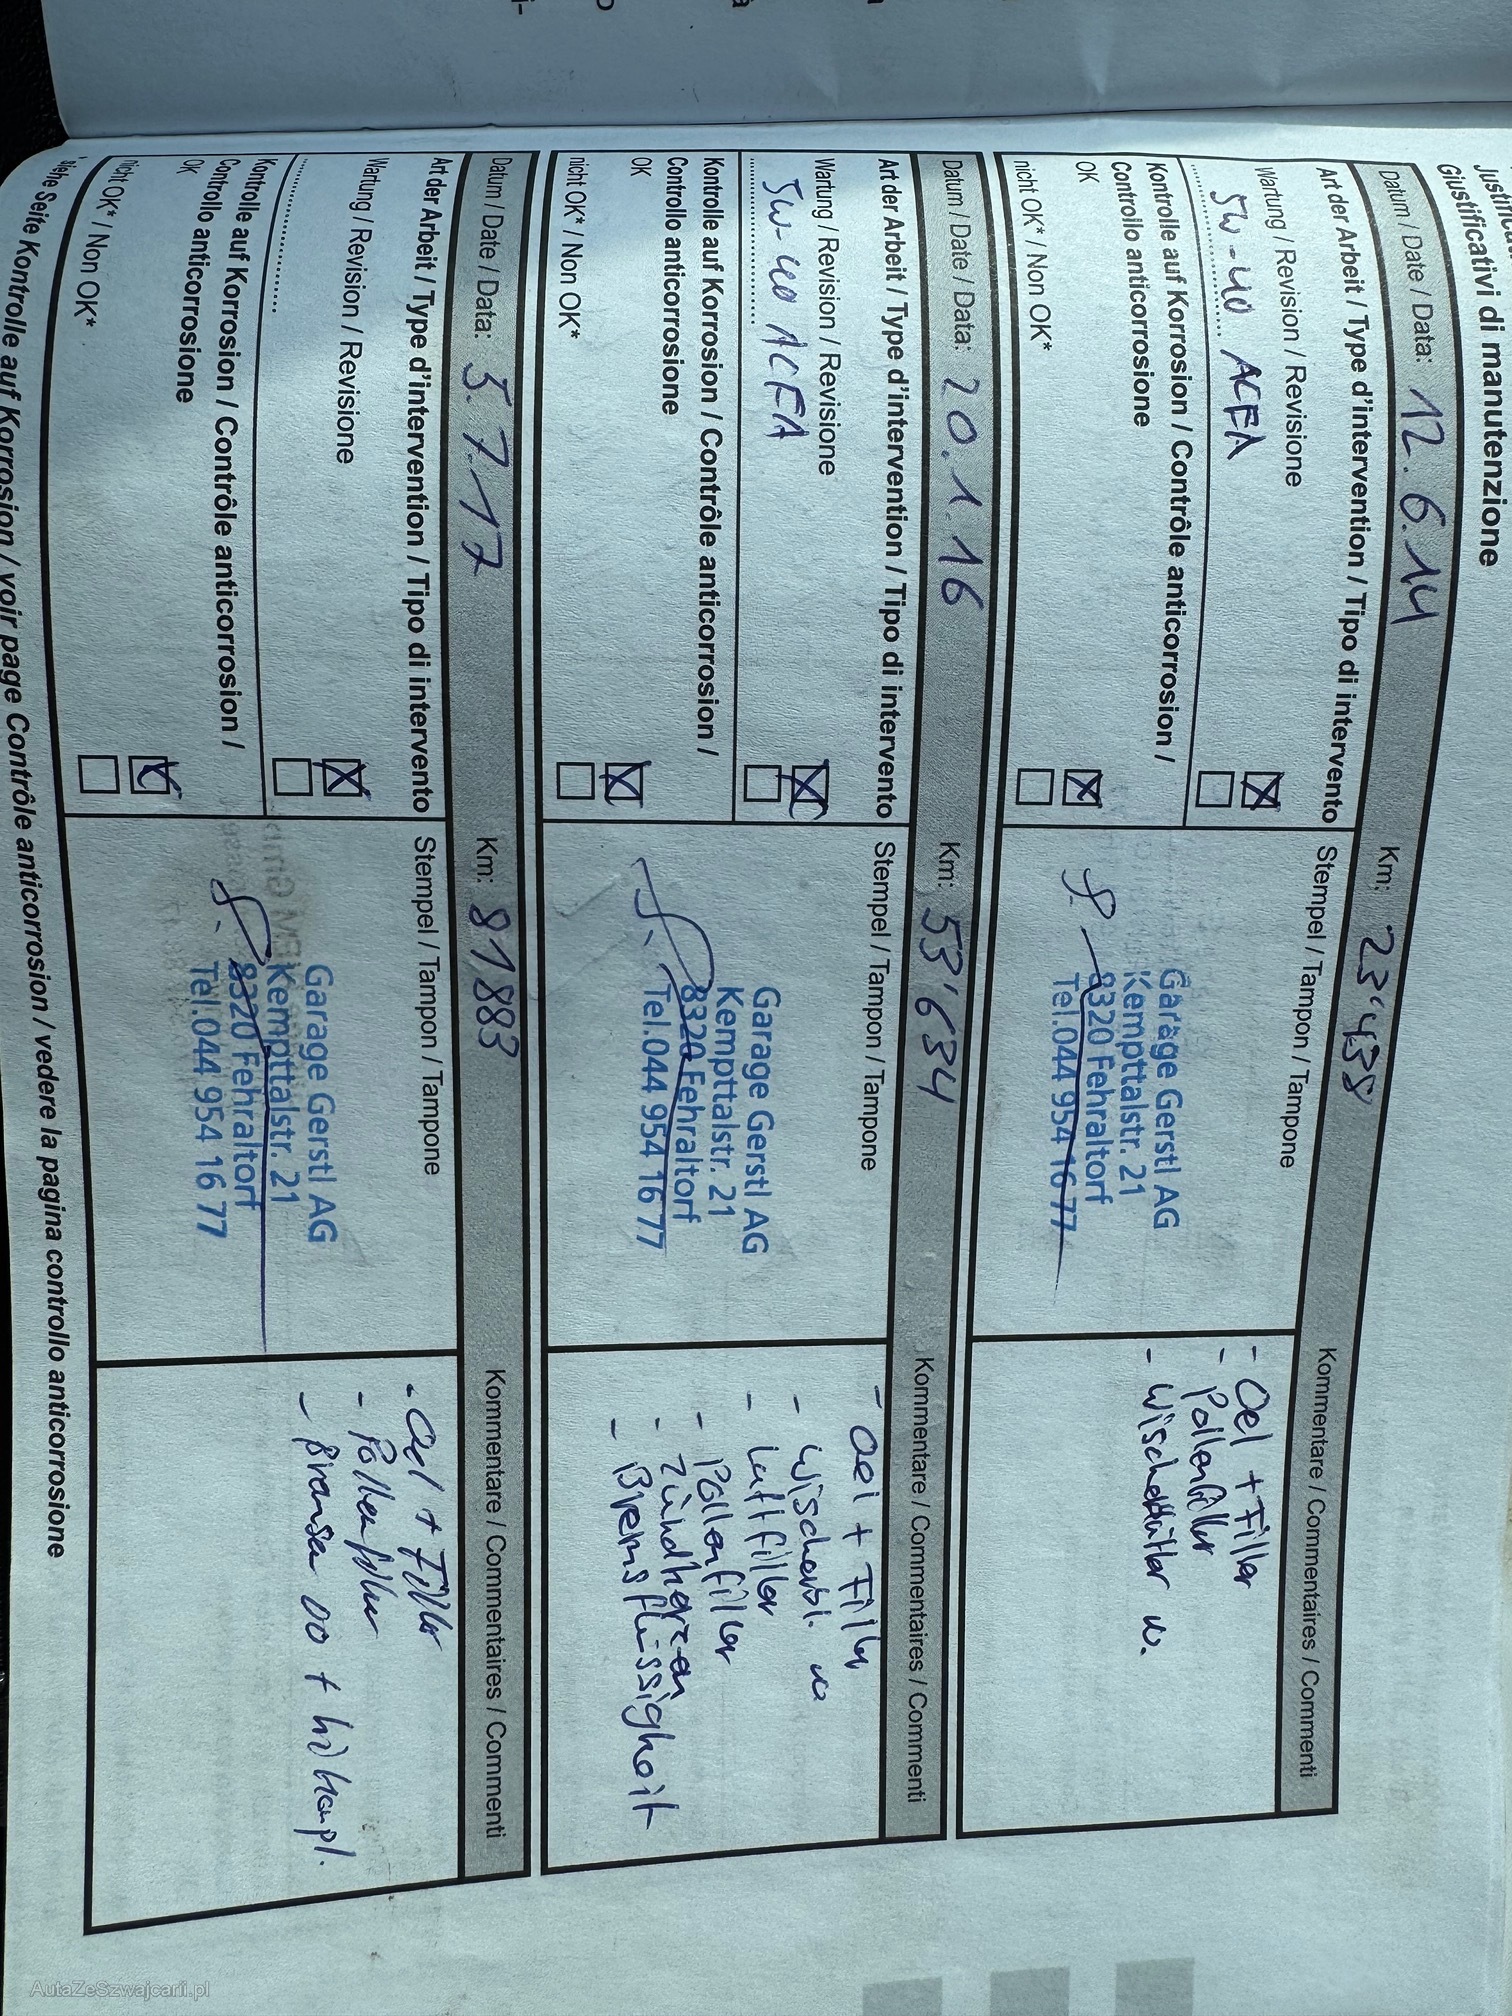 Giustificativi di manutenzione
Datum / Date / Data: 12.6.14 Km: 23'438 Kommentare / Commentaires / Commenti
Art der Arbeit / Type d'intervention / Tipo di intervento
Wartung / Revision / Revisione
5W-40 ACEA
Kontrolle auf Korrosion / Contrôle anticorrosion /
Controllo anticorrosione
OK
nicht OK* / Non OK*
Stempel / Tampon / Tampone
Garage Gerstl AG
Kempttalstr. 21
8320 Fehraltorf
Tel.044 954 16 77
- Oel + Filter
- Pollenfilter
- Wischerblätter v.
Datum / Date / Data: 20.1.16 Km: 53'634 Kommentare / Commentaires / Commenti
Art der Arbeit / Type d'intervention / Tipo di intervento
Wartung / Revision / Revisione
5W-40 ACEA
Kontrolle auf Korrosion / Contrôle anticorrosion /
Controllo anticorrosione
OK
nicht OK* / Non OK*
Stempel / Tampon / Tampone
Garage Gerstl AG
Kempttalstr. 21
8320 Fehraltorf
Tel.044 954 16 77
- Oel + Filter
- Wischerbl. v
- Luftfilter
- Pollenfilter
- Zündkerzen
- Bremsflüssigkeit
Datum / Date / Data: 5.7.17 Km: 81883 Kommentare / Commentaires / Commenti
Art der Arbeit / Type d'intervention / Tipo di intervento
Wartung / Revision / Revisione
Kontrolle auf Korrosion / Contrôle anticorrosion /
Controllo anticorrosione
OK
nicht OK* / Non OK*
Stempel / Tampon / Tampone
Garage Gerstl AG
Kempttalstr. 21
8320 Fehraltorf
Tel.044 954 16 77
- Oel + Filter
- Pollenfilter
- Bremsen + hi kompl.
siehe Seite Kontrolle auf Korrosion / voir page Contrôle anticorrosion / vedere la pagina controllo anticorrosione
AutaZeSzwajcarii.pl